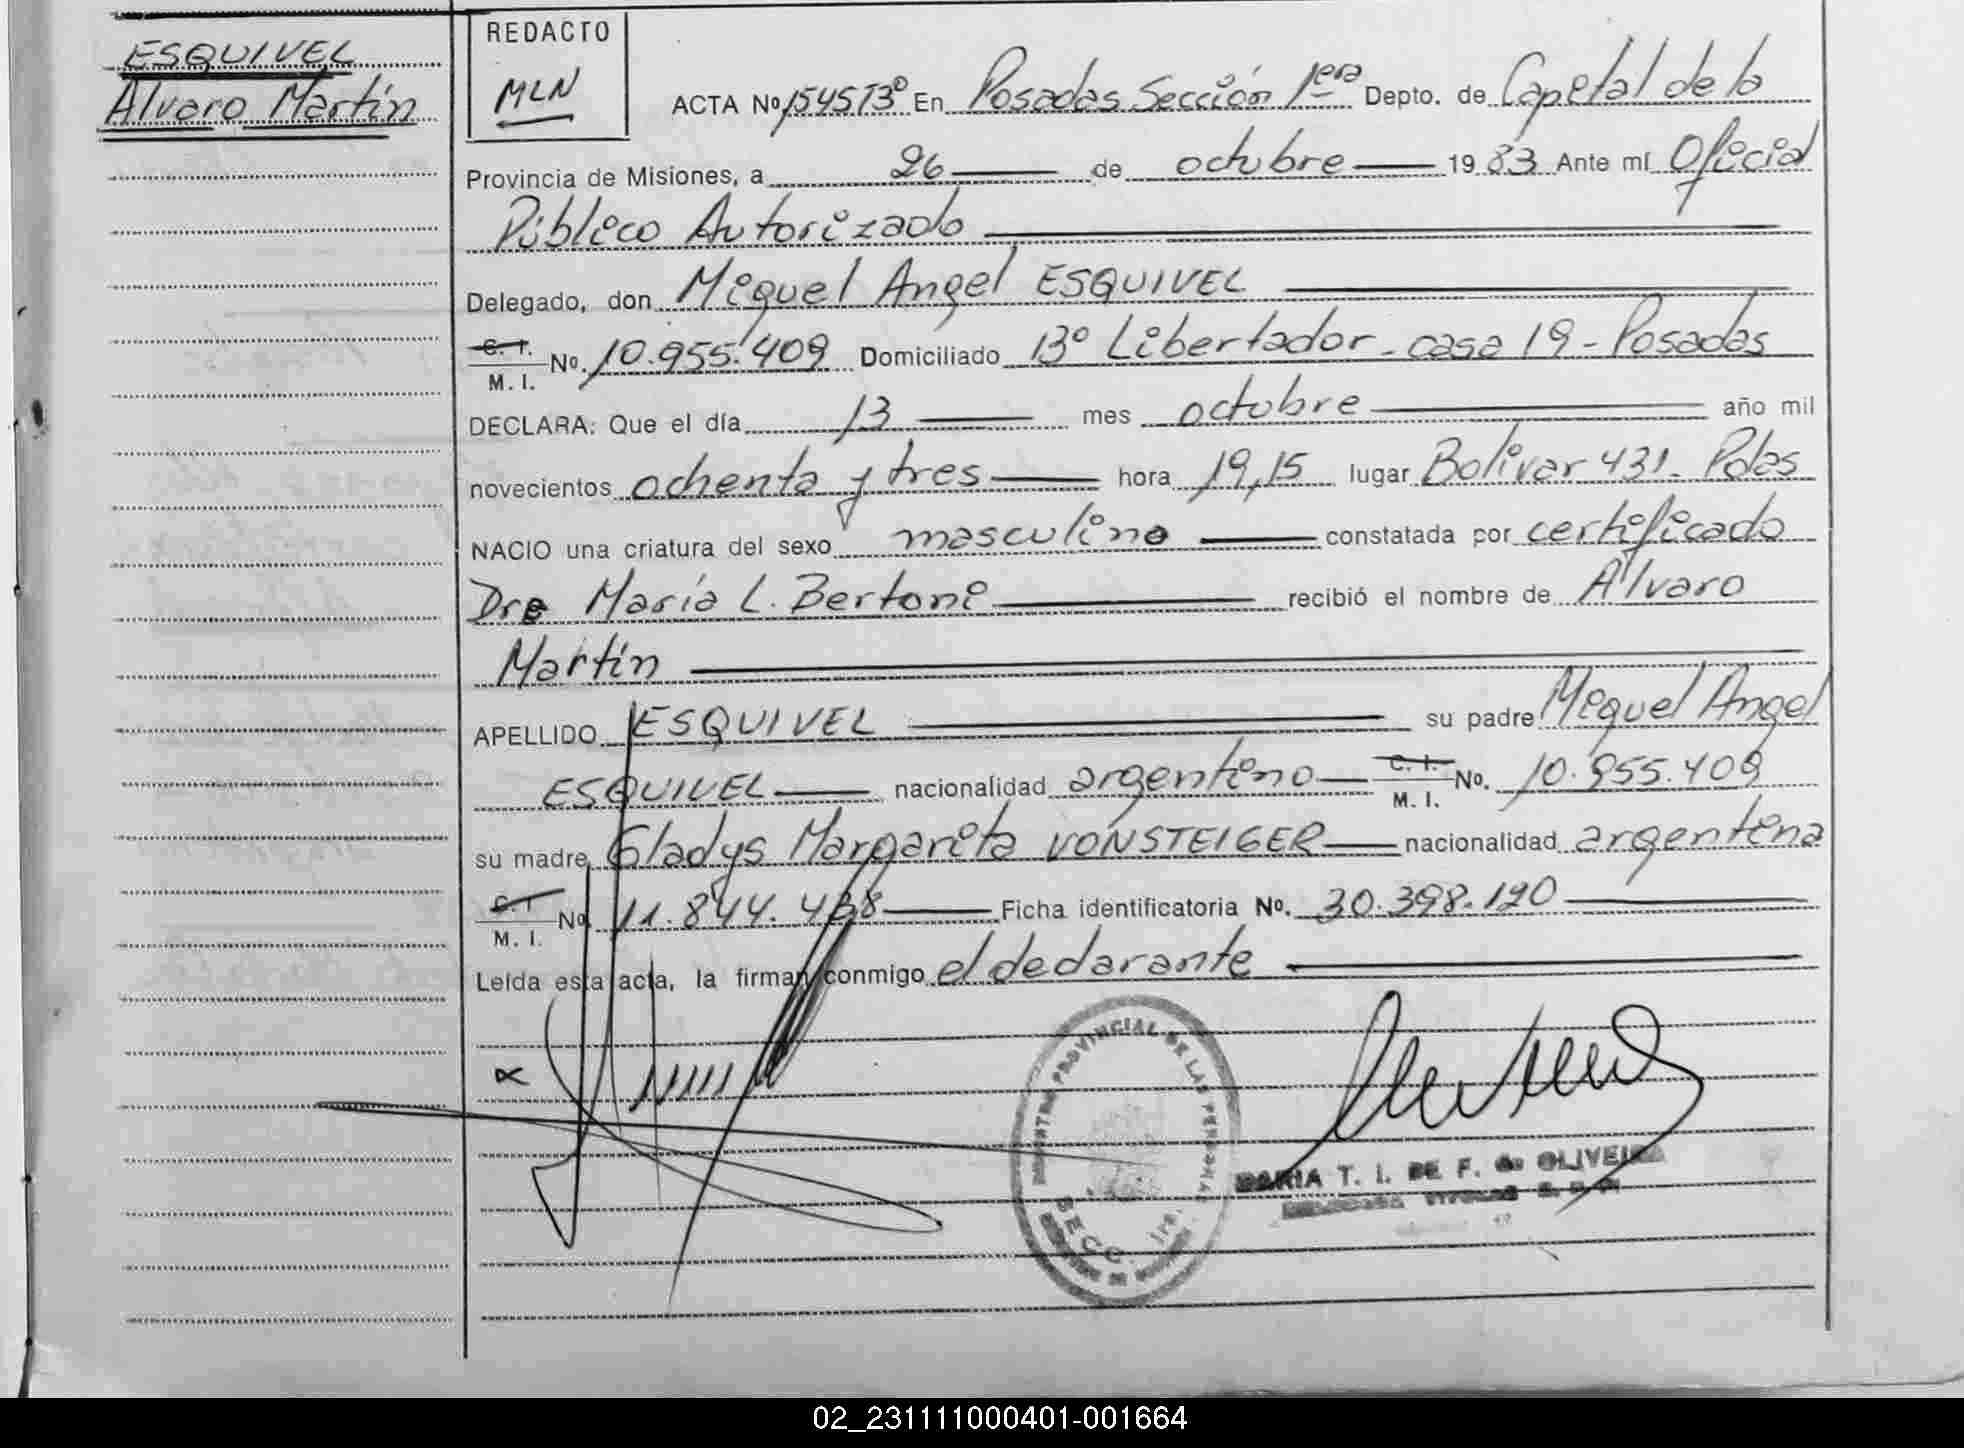 ESQUIVEL
Alvaro Martín
REDACTO
MLN
ACTA Nº 1545T3º En Posadas Sección 1era Depto. de Capital de la
Provincia de Misiones, a 26 de octubre 1983 Ante mí Oficial
Público Autorizado
Delegado, don Miguel Angel ESQUIVEL
C. I.
M. I. Nº. 10.955.409 Domiciliado Bº Libertador - casa 19 - Posadas
DECLARA: Que el día 13 mes octubre año mil
novecientos ochenta y tres hora 19,15 lugar Bolívar 431 - Pdas
NACIO una criatura del sexo masculino constatada por certificado
Dra María L. Bertoni recibió el nombre de Alvaro
Martín
APELLIDO ESQUIVEL su padre Miguel Angel
ESQUIVEL nacionalidad argentino C. I.
M. I. Nº. 10.955.409
su madre Gladys Margarita VONSTEIGER nacionalidad argentina
C. I.
M. I. Nº 11.844.438 Ficha identificatoria Nº. 30.398.190
Leída esta acta, la firman conmigo el declarante
PROVINCIAL DE LAS PERSONAS
SECC. 1ra.
MARIA T. I. DE F. de OLIVEIRA
02_231111000401-001664